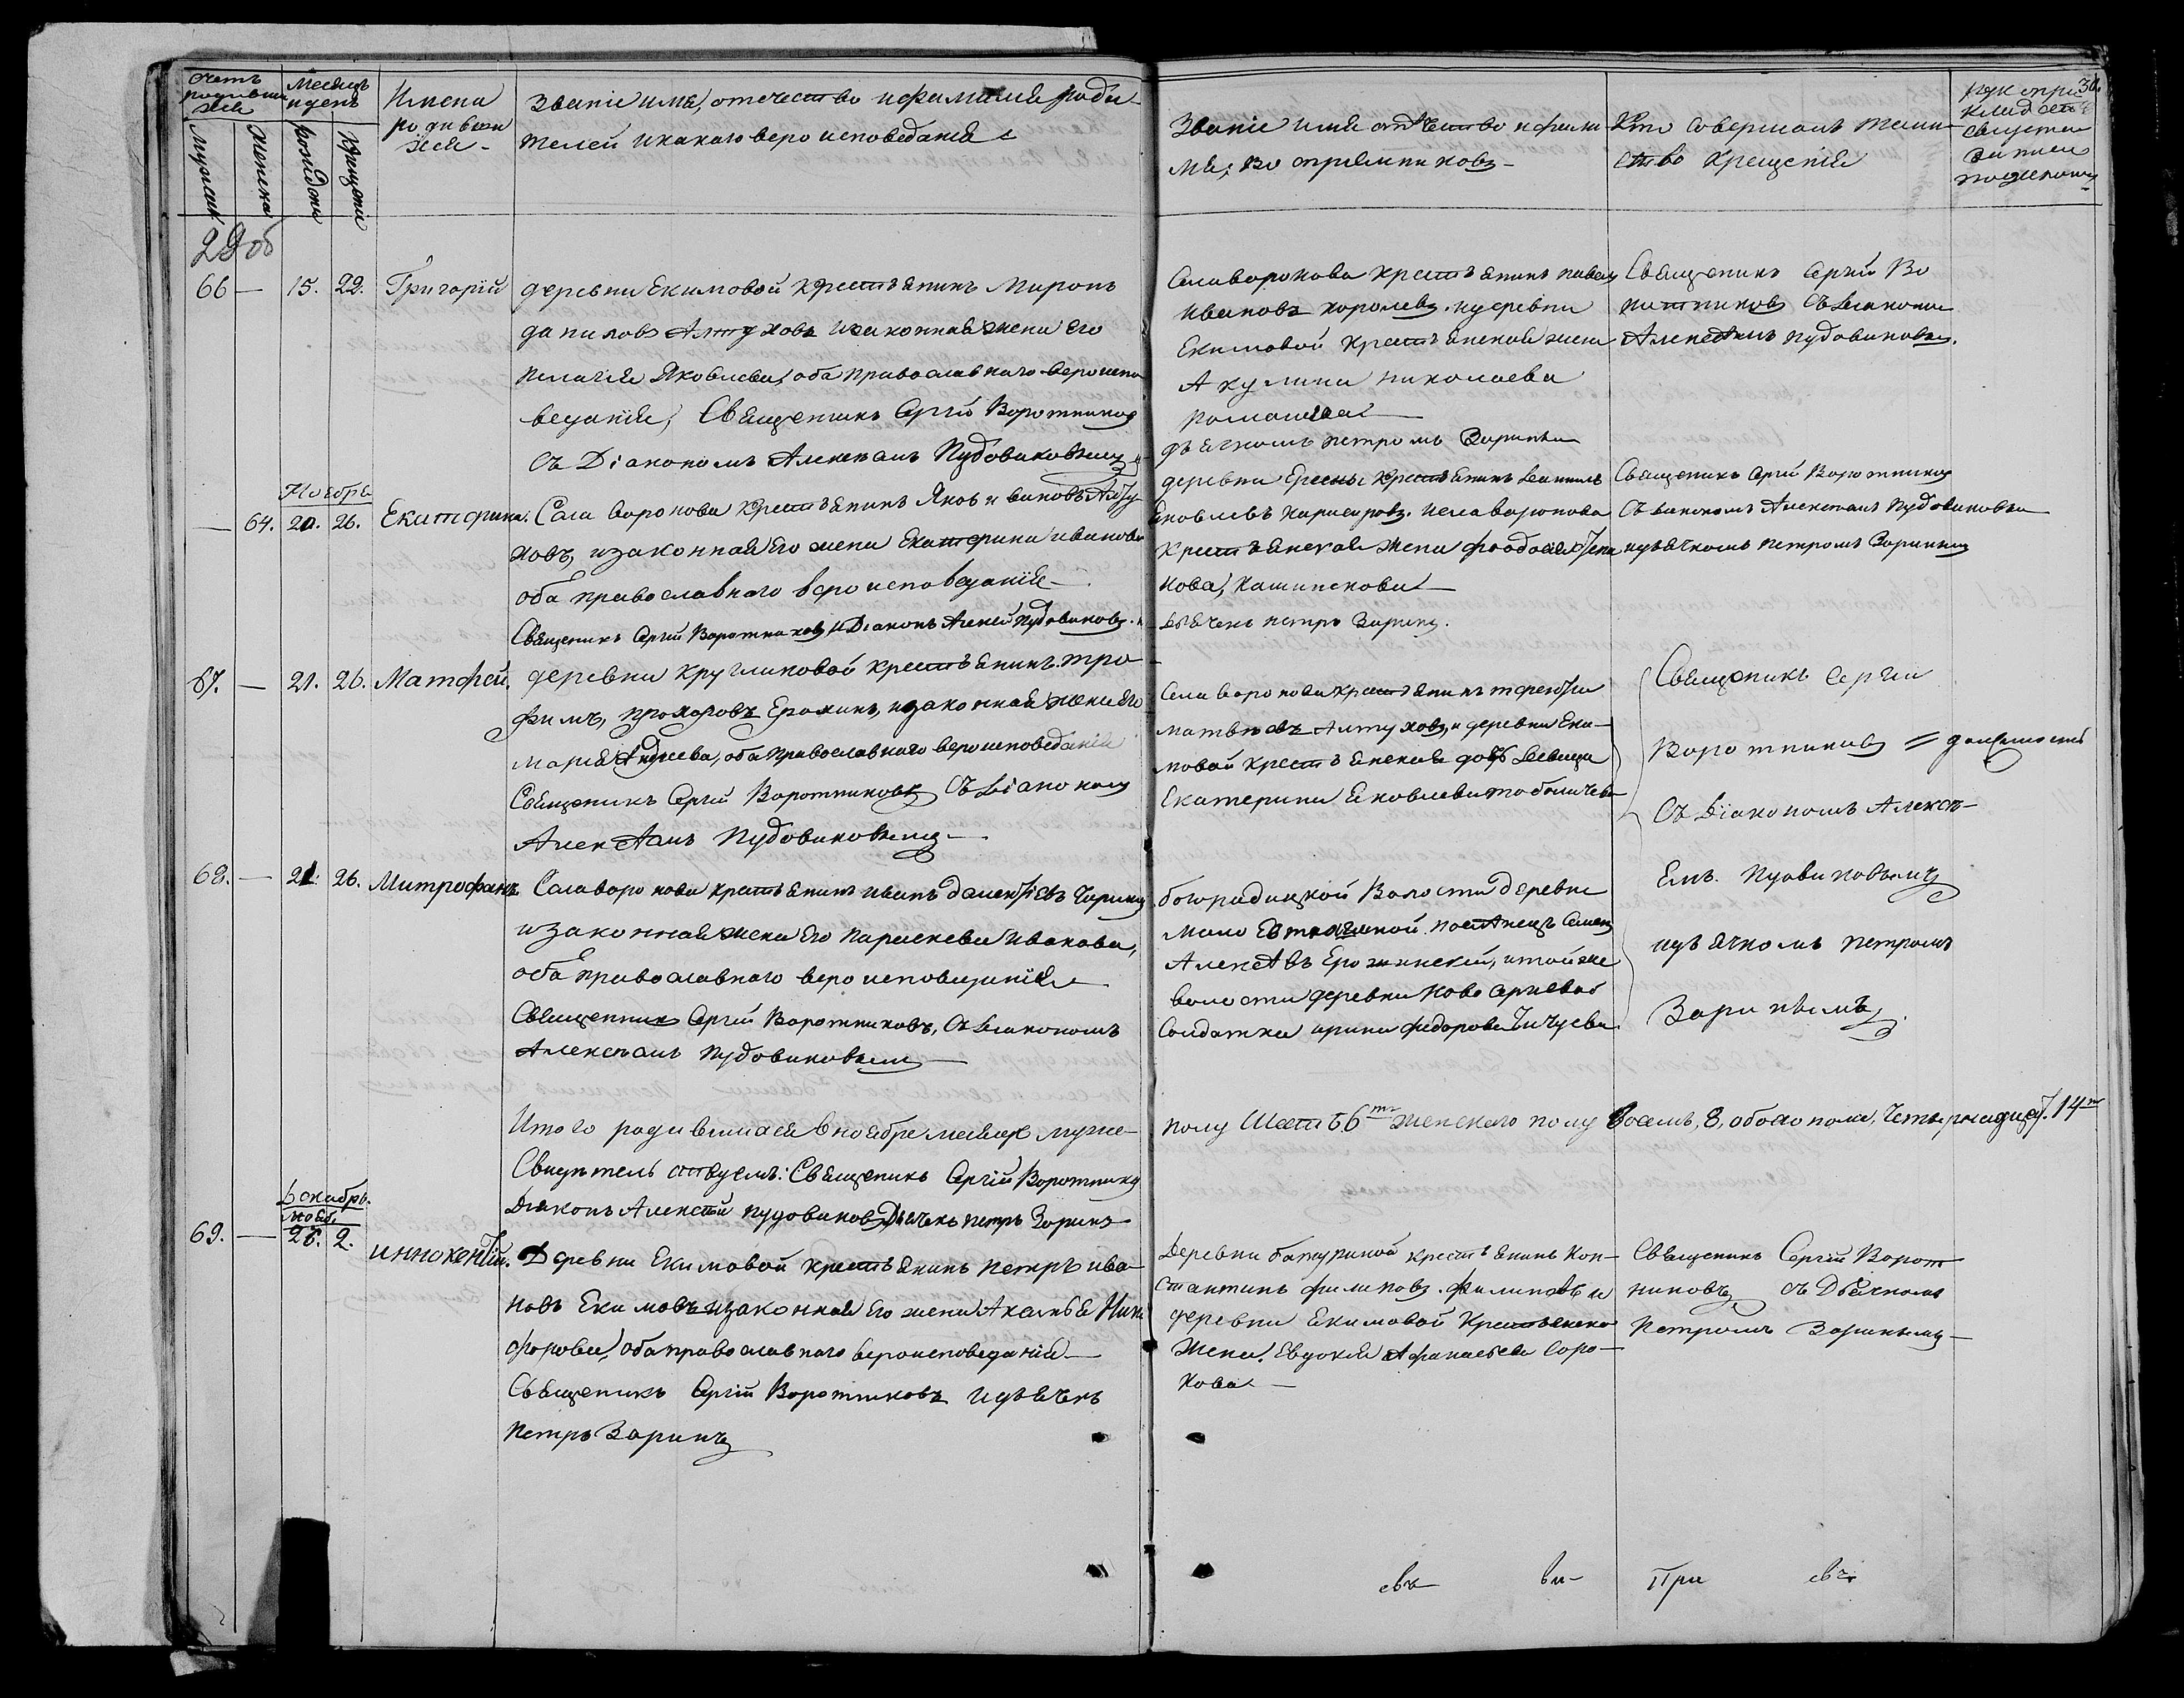 Счетъ родившихся
Месяцъ и день
Имена родившихся
Званіе имя, отечество и фамилія роди-
телей и какаго вероисповеданія
Званіе имя отчество и фами-
лія, воспріемниковъ
Кто совершалъ таин-
ство крещенія
Мужска
Женска
Рожденія
Крещенія
30.
29 об
66 — 15. 22. Григорій
деревни Екимовой крестьянинъ Миронъ
даниловъ Алтуховъ и законная жена его
Пелагія Яковлева, оба православнаго вероиспо
веданія, Священикъ Сергій Воротниковъ
съ Діакономъ Алексѣемъ Пудовиковымъ
Села воронова крестьянинъ павелъ
ивановъ королевъ и деревни
Екимовой крестьянская жена
Акулина николаева
романова
дьячкомъ петромъ Заринымъ
Священикъ Сергій Во
ротниковъ съ діакономъ
Алексѣемъ пудовиковымъ.
Ноебрь
— 64. 20. 26. Екатерина.
Села воронова крестьянинъ Яковъ ивановъ Алту
ховъ, и законная его жена Екатерина иванова
оба православнаго вероисповеданія
Священикъ Сергій Воротниковъ и Діаконъ Алексей Пудовиковъ. и
деревни крестьянинъ Даниилъ
Яковлевъ и села воронова
крестьянская жена
нова, кашинскова
дьячекъ петръ Заринъ.
Священикъ Сергій Воротниковъ
съ діакономъ Алексѣемъ Пудовиковымъ
и дьячкомъ петромъ Заринымъ
67. — 21. 26. Матфей.
деревни кругликовой крестьянинъ тро-
фимъ, прохоровъ Ерохинъ, и законная жена его
марія Андреева, оба православнаго вероисповеданія
Священикъ Сергій Воротниковъ съ діакономъ
Алексѣемъ Пудовиковымъ
Села воронова крестьянинъ терентій
матвѣевъ Алтуховъ, и деревни Еки-
мовой крестьянская дочь девица
Екатерина Яковлева
Священикъ Сергій
Воротниковъ
съ діакономъ Алексѣ-
емъ. Пудовиковымъ
и дьячкомъ петромъ
Заринымъ.
68. — 21. 26. Митрофанъ.
Села воронова крестьянинъ иванъ
и законная жена его параскева иванова,
оба православнаго вероисповеданія
Священникъ Сергій Воротниковъ, съ діакономъ
Алексѣемъ Пудовиковымъ
богородицкой Волости деревни
мало
Алексѣевъ и той же
волости деревни
Солдатка ирина федорова
Итого родившихся в ноябре месяце муже-
полу Шесть 6 женскаго полу восемь, 8, обоего пола, Четырнадцать. 14
Свидѣтельствуемъ: Священикъ Сергій Воротниковъ
Діаконъ Алексѣй пудовиковъ Дьячекъ петръ Заринъ
Декабрь.
нояб.
69. — 2. иннокентій.
Деревни Екимовой крестьянинъ петръ ива-
новъ Екимовъ и законная его жена Ники
форова, оба православнаго вероисповеданія
Священикъ Сергій Воротниковъ и дьячекъ
Петръ Заринъ
Деревни батуриной крестьянинъ Кон-
стантинъ филиповъ. филиповъ и
деревни Екимовой крестьянска
Жена. Евдокія Афанасьева Соро-
кова
Священикъ Сергій Ворот
никовъ съ Дьячкомъ
Петромъ Заринымъ
евъ ви- При евъ